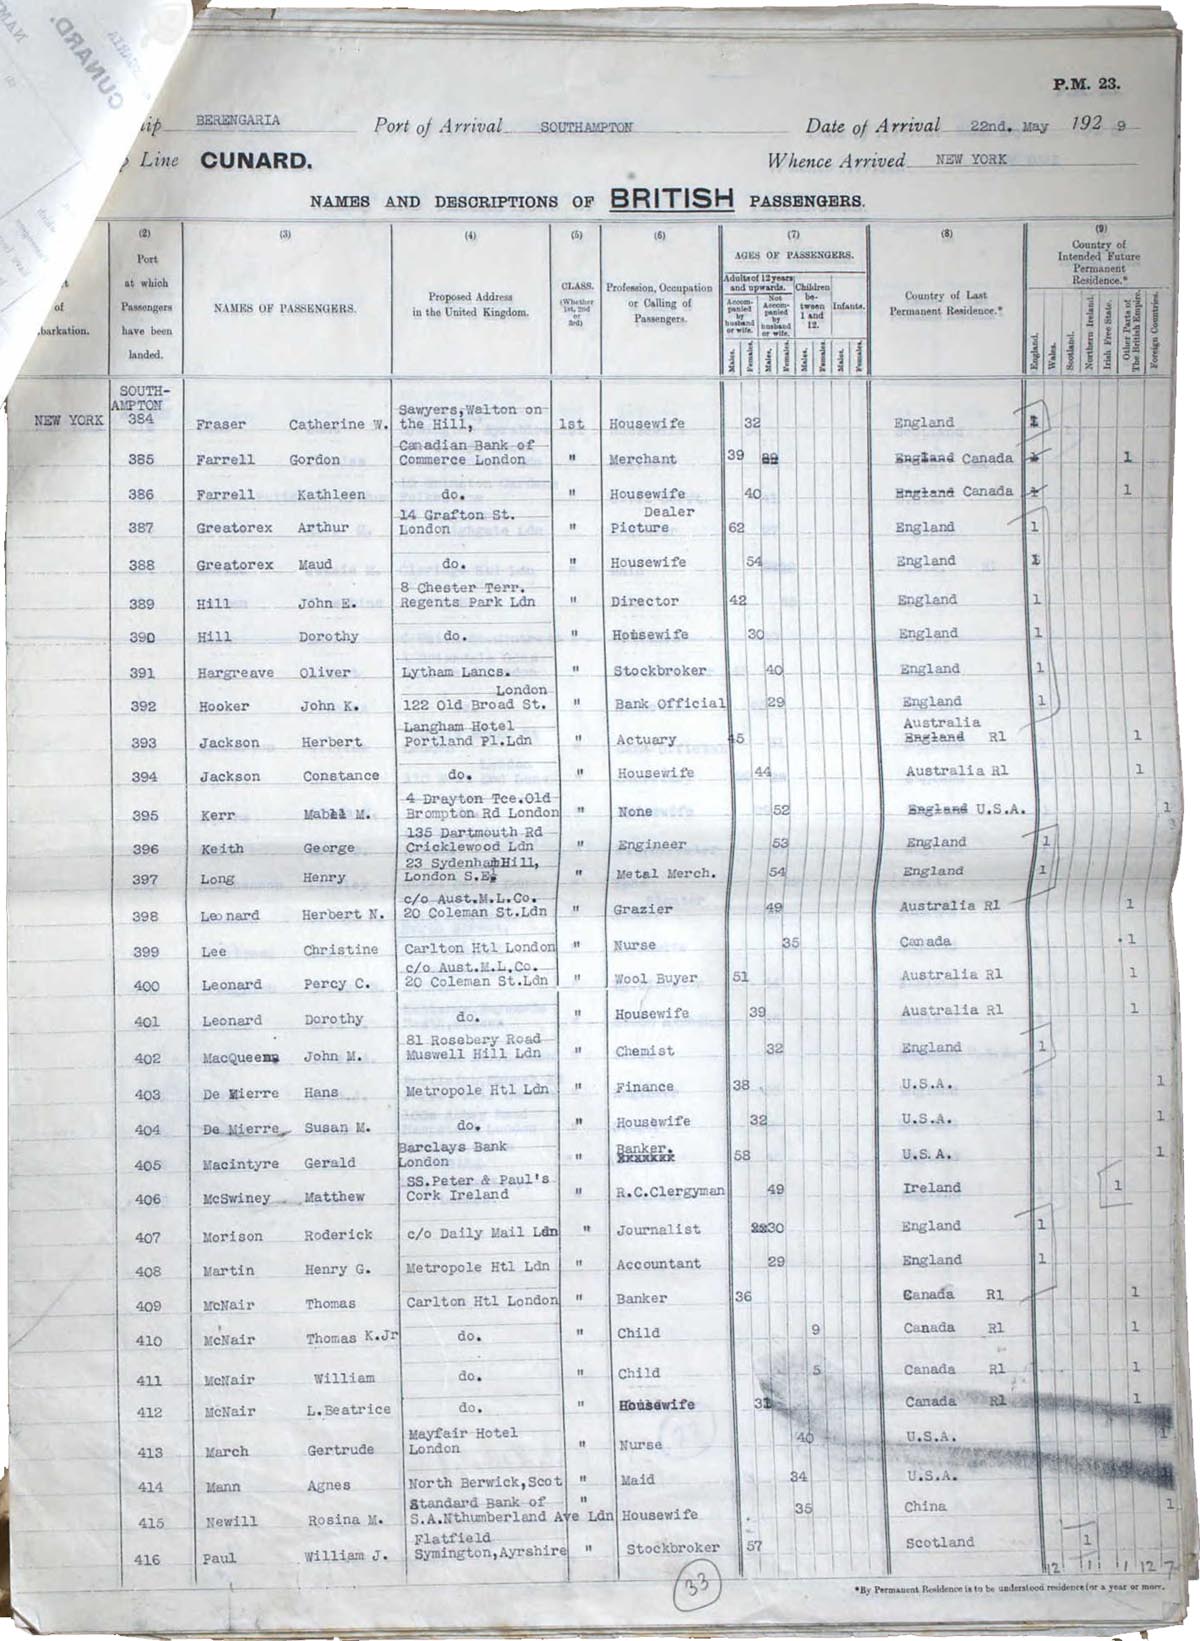 P.M. 23.
BERENGARIA Port of Arrival SOUTHAMPTON Date of Arrival 22nd. May 192 9
Line CUNARD. Whence Arrived NEW YORK
NAMES AND DESCRIPTIONS OF BRITISH PASSENGERS.
(2) Port at which Passengers have been landed.
(3) NAMES OF PASSENGERS.
(4) Proposed Address in the United Kingdom.
(5) CLASS. (Whether 1st, 2nd or 3rd)
(6) Profession, Occupation or Calling of Passengers.
(7) AGES OF PASSENGERS.
Adults of 12 years and upwards. Children between 1 and 12. Infants.
Accompanied by husband or wife. Not Accompanied by husband or wife.
Males. Females. Males. Females. Males. Females. Males. Females.
(8) Country of Last Permanent Residence.*
(9) Country of Intended Future Permanent Residence.*
England. Wales. Scotland. Northern Ireland. Irish Free State. Other Parts of The British Empire. Foreign Countries.
SOUTH-
AMPTON
NEW YORK 384 Fraser Catherine W. Sawyers,Walton on the Hill, 1st Housewife 32 England 1
385 Farrell Gordon Canadian Bank of Commerce London " Merchant 39 England Canada 1 1
386 Farrell Kathleen do. " Housewife 40 England Canada 1 1
387 Greatorex Arthur 14 Grafton St. London " Dealer Picture 62 England 1
388 Greatorex Maud do. " Housewife 54 England 1
389 Hill John E. 8 Chester Terr. Regents Park Ldn " Director 42 England 1
390 Hill Dorothy do. " Housewife 30 England 1
391 Hargreave Oliver Lytham Lancs. " Stockbroker 40 England 1
392 Hooker John K. London 122 Old Broad St. " Bank Official 29 England 1
393 Jackson Herbert Langham Hotel Portland Pl.Ldn " Actuary 45 Australia England R1 1
394 Jackson Constance do. " Housewife 44 Australia R1 1
395 Kerr Mabel M. 4 Drayton Tce.Old Brompton Rd London " None 52 England U.S.A. 1
396 Keith George 135 Dartmouth Rd Cricklewood Ldn " Engineer 53 England 1
397 Long Henry 23 Sydenham Hill, London S.E. " Metal Merch. 54 England 1
398 Leonard Herbert N. c/o Aust.M.L.Co. 20 Coleman St.Ldn " Grazier 49 Australia R1 1
399 Lee Christine Carlton Htl London " Nurse 35 Canada 1
400 Leonard Percy C. c/o Aust.M.L.Co. 20 Coleman St.Ldn " Wool Buyer 51 Australia R1 1
401 Leonard Dorothy do. " Housewife 39 Australia R1 1
402 MacQueen John M. 81 Rosebery Road Muswell Hill Ldn " Chemist 32 England 1
403 De Mierre Hans Metropole Htl Ldn " Finance 38 U.S.A. 1
404 De Mierre Susan M. do. " Housewife 32 U.S.A. 1
405 Macintyre Gerald Barclays Bank London " Banker. xxxxxxx 58 U.S.A. 1
406 McSwiney Matthew SS.Peter & Paul's Cork Ireland " R.C.Clergyman 49 Ireland 1
407 Morison Roderick c/o Daily Mail Ldn " Journalist 30 England 1
408 Martin Henry G. Metropole Htl Ldn " Accountant 29 England 1
409 McNair Thomas Carlton Htl London " Banker 36 Canada R1 1
410 McNair Thomas K.Jr do. " Child 9 Canada R1 1
411 McNair William do. " Child 5 Canada R1 1
412 McNair L.Beatrice do. " Housewife 31 Canada R1 1
413 March Gertrude Mayfair Hotel London " Nurse 40 U.S.A. 1
414 Mann Agnes North Berwick,Scot " Maid 34 U.S.A.
415 Newill Rosina M. Standard Bank of S.A.Nthumberland Ave Ldn " Housewife 35 China 1
416 Paul William J. Flatfield Symington,Ayrshire " Stockbroker 57 Scotland 1
12 1 1 12 7
33
*By Permanent Residence is to be understood residence for a year or more.